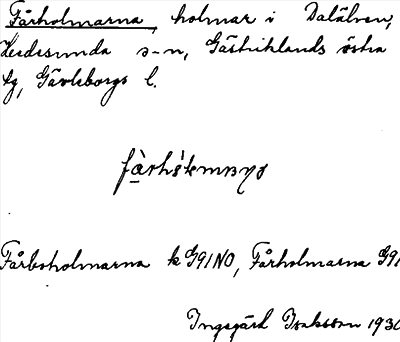 Fårholmarna, holmar i Dalälven,
Hedesunda s-n, Gästriklands östra
tg, Gävleborgs l.
Fårboholmarna k G91NO, Fårholmarna G91
Ingegärd Isaksson 1930